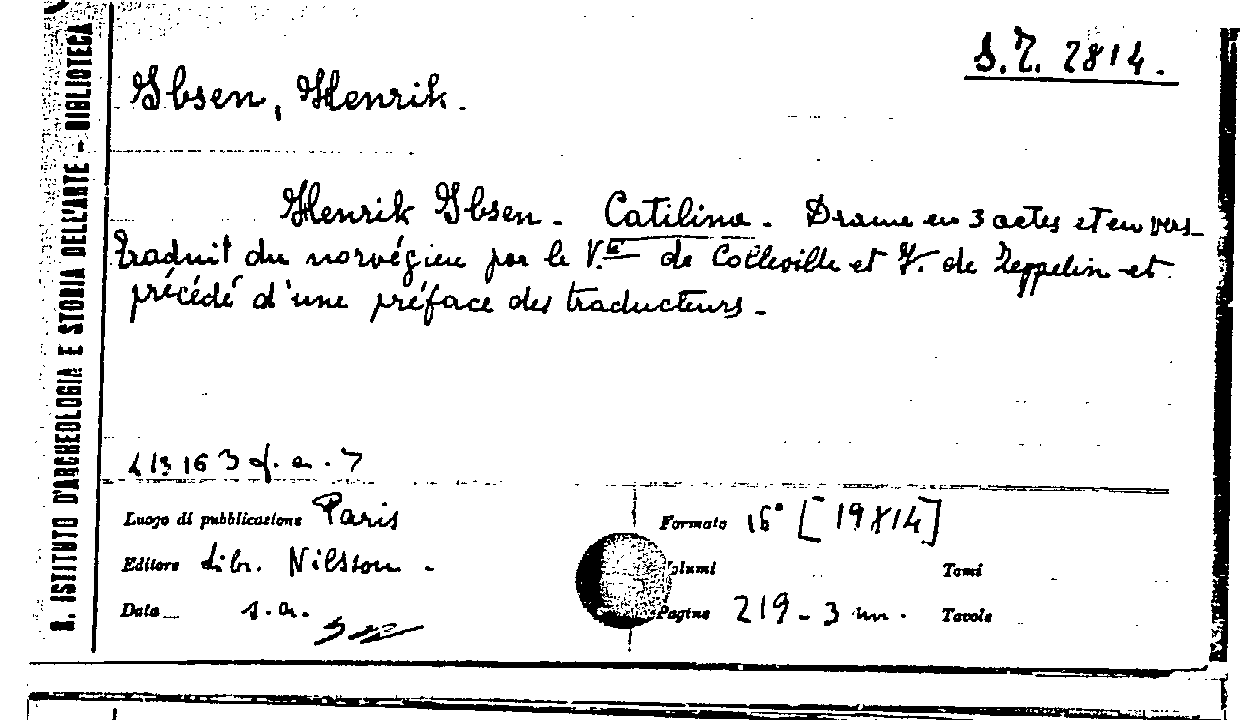 R. ISTITUTO D'ARCHEOLOGIA E STORIA DELL'ARTE - BIBLIOTECA
Ibsen, Henrik.
Henrik Ibsen. - Catilina. - Drame en 3 actes et en vers -
traduit du norvégien par le V.te de Colleville et F. de Zeppelin et
précédé d'une préface des traducteurs. -
Luogo di pubblicazione Paris
Formato 16° [19X14]
Editore Libr. Nilsson -
Volumi
Tomi
Data s.a.
Pagine 219-3 nn.
Tavole